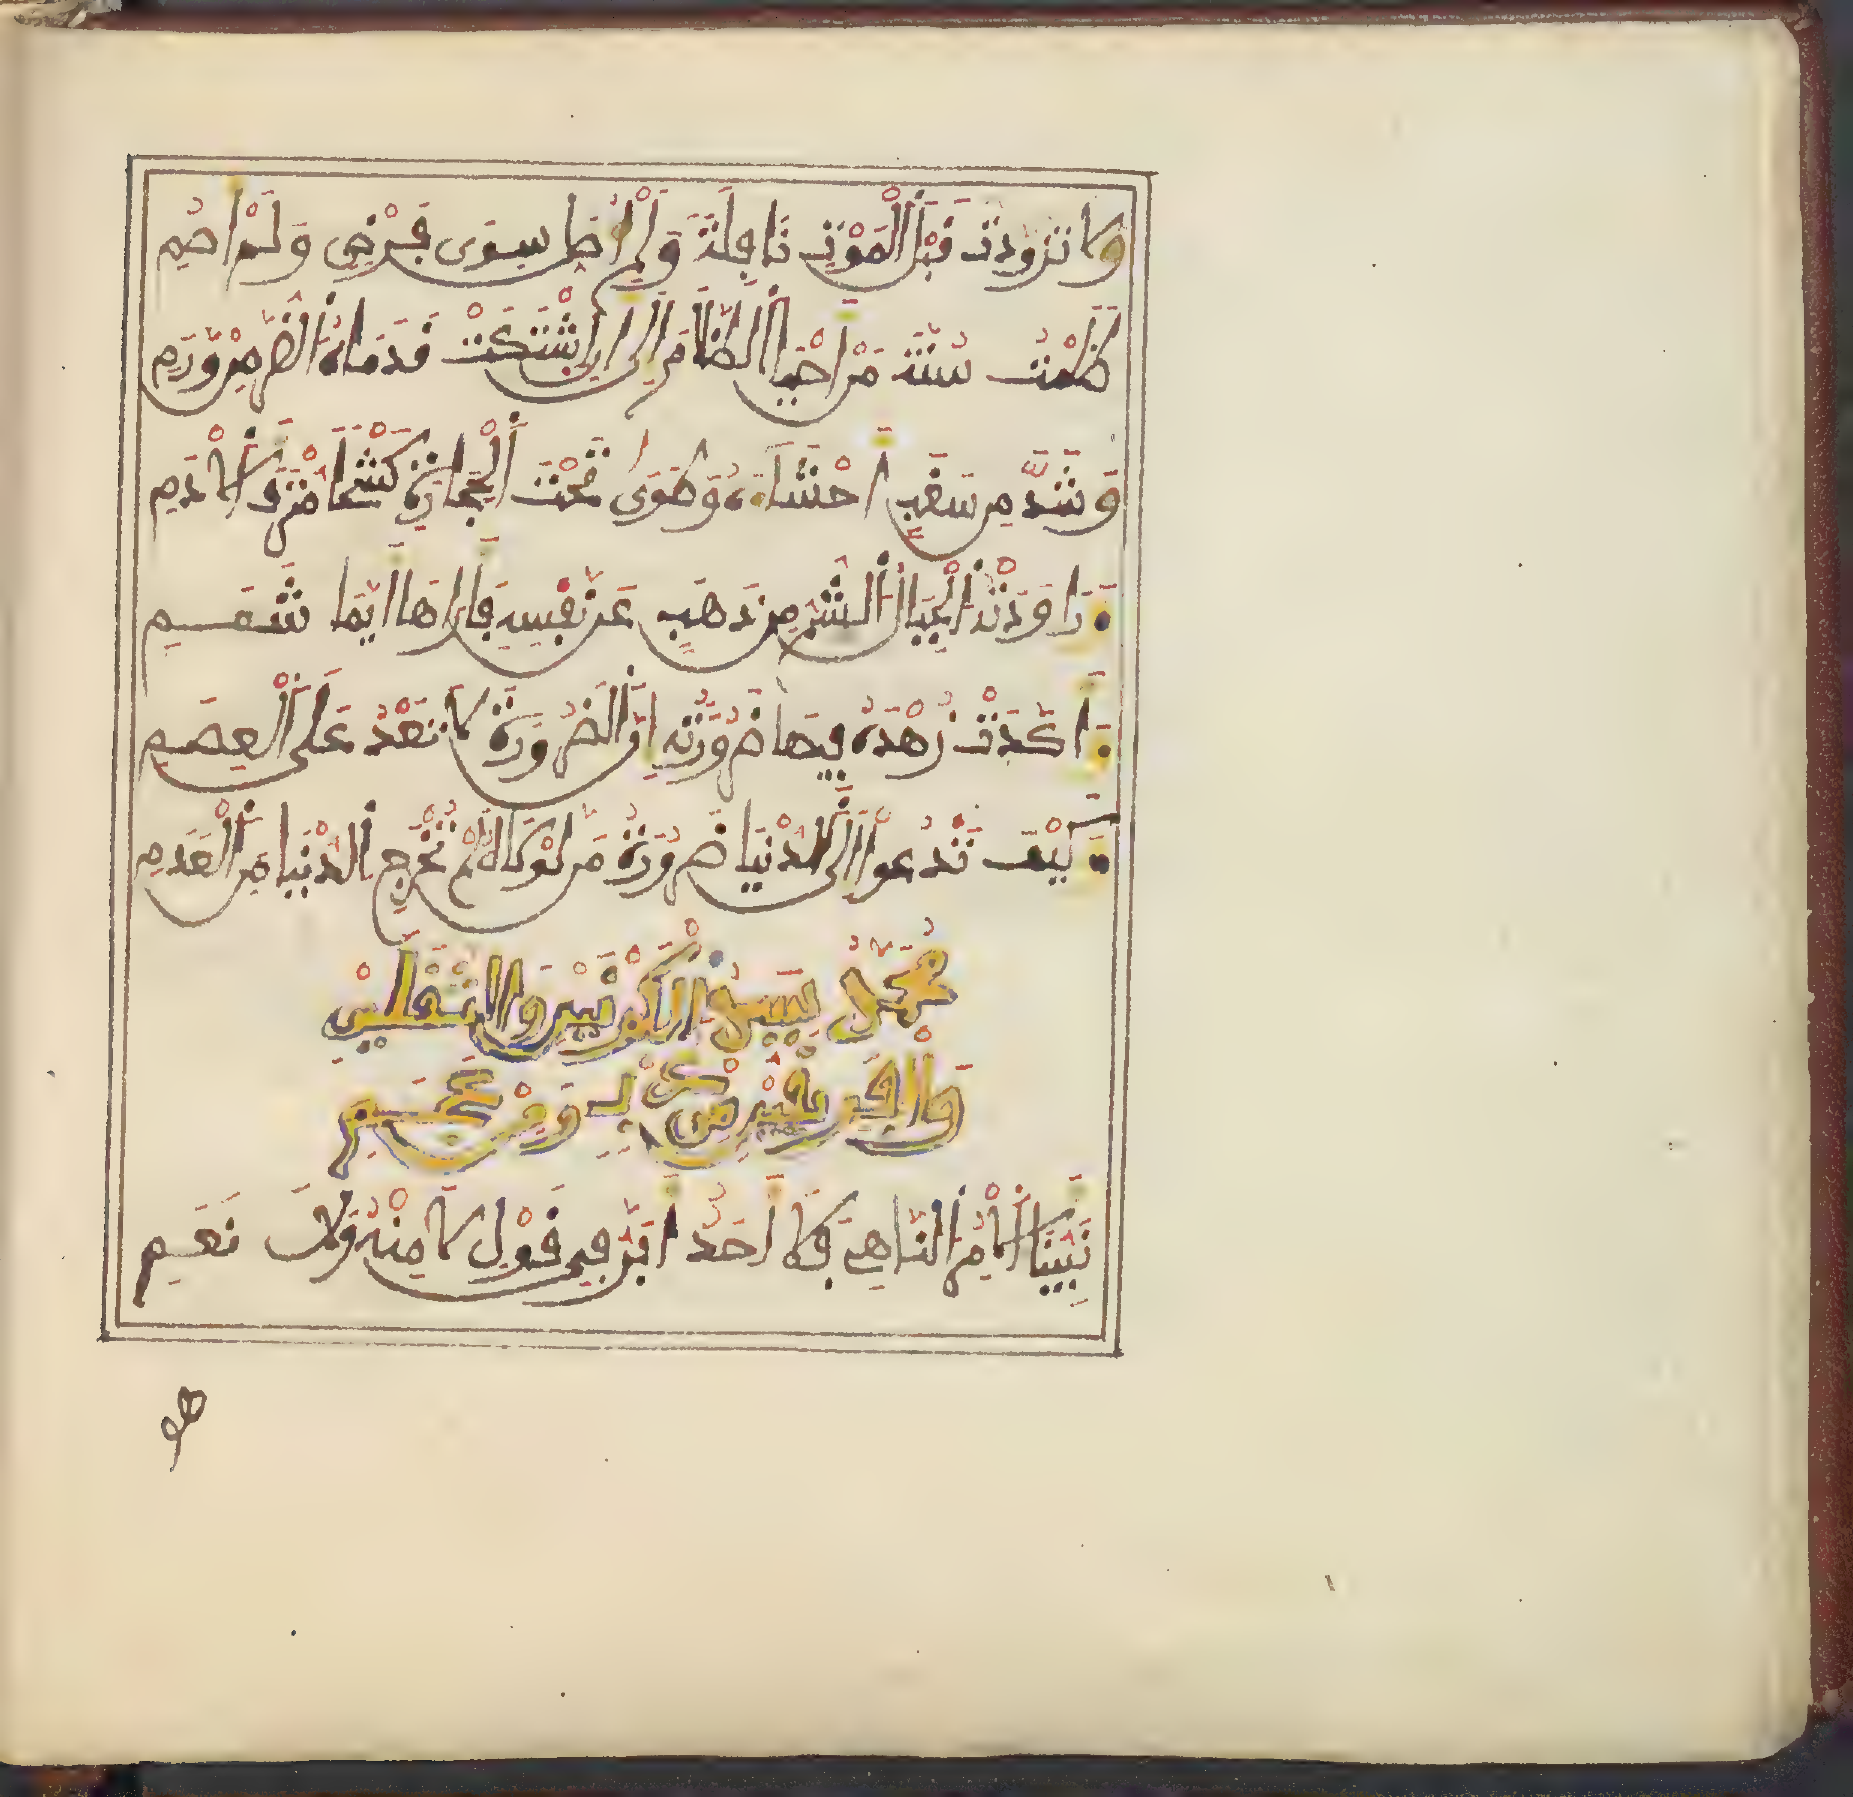 وَلا تزودت قَبْلَ الْمَوْتِ نَافِلَةً وَلَمْ أُصَلِّ سِوَى فَرْضٍ وَلَمْ أَصُمِ
ظَلَمْتُ سُنَّةَ مَنْ أَحْيَا الظَّلَامَ إِلَى أَنِ اشْتَكَتْ قَدَمَاهُ الضُّرَّ مِنْ وَرَمِ
وَشَدَّ مِنْ سَغَبٍ أَحْشَاءَهُ وَطَوَى تَحْتَ الْحِجَارَةِ كَشْحًا مُتْرَفَ الْأَدَمِ
وَرَاوَدَتْهُ الْجِبَالُ الشُّمُّ مِنْ ذَهَبٍ عَنْ نَفْسِهِ فَأَرَاهَا أَيَّمَا شَمَمِ
وَأَكَّدَتْ زُهْدَهُ فِيهَا ضَرُورَتُهُ إِنَّ الضَّرُورَةَ لَا تَعْدُو عَلَى الْعِصَمِ
وَكَيْفَ تَدْعُوا إِلَى الدُّنْيَا ضَرُورَةُ مَنْ لَوْلَاهُ لَمْ تَخْرُجِ الدُّنْيَا مِنَ الْعَدَمِ
مُحَمَّدٌ سَيِّدُ الْكَوْنَيْنِ وَالثَّقَلَيْنِ
وَالْفَرِيقَيْنِ مِنْ عُرْبٍ وَمِنْ عَجَمِ
نَبِيُّنَا الْآمِرُ النَّاهِي فَلَا أَحَدٌ أَبَرَّ فِي قَوْلِ لَا مِنْهُ وَلَا نَعَمِ
هو